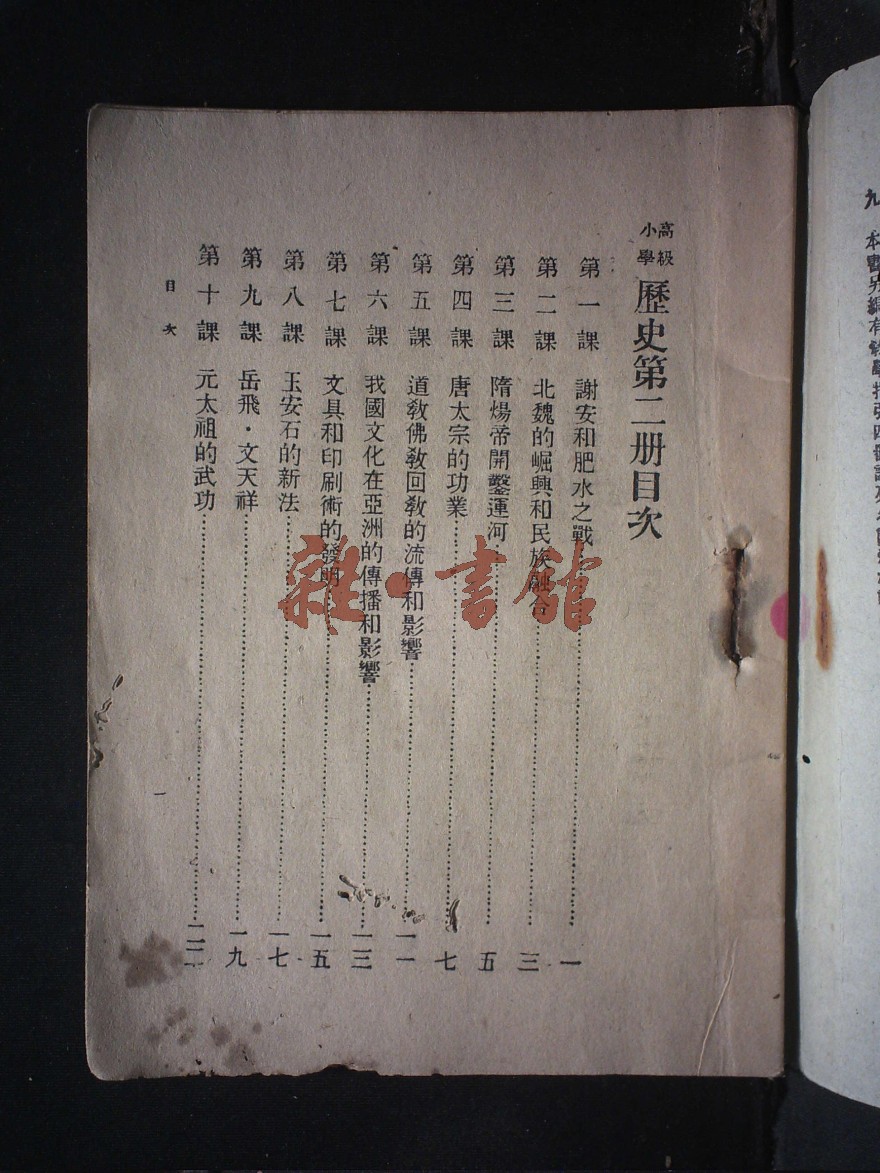 九 本書另編有
高級小學 歷史第二册目次
第一課 謝安和肥水之戰……一
第二課 北魏的崛興和民族融合……三
第三課 隋煬帝開鑿運河……五
第四課 唐太宗的功業……七
第五課 道教佛教回教的流傳和影響……一一
第六課 我國文化在亞洲的傳播和影響……一三
第七課 文具和印刷術的發明……一五
第八課 王安石的新法……一七
第九課 岳飛·文天祥……一九
第十課 元太祖的武功……二二
目次 一
雜·書館